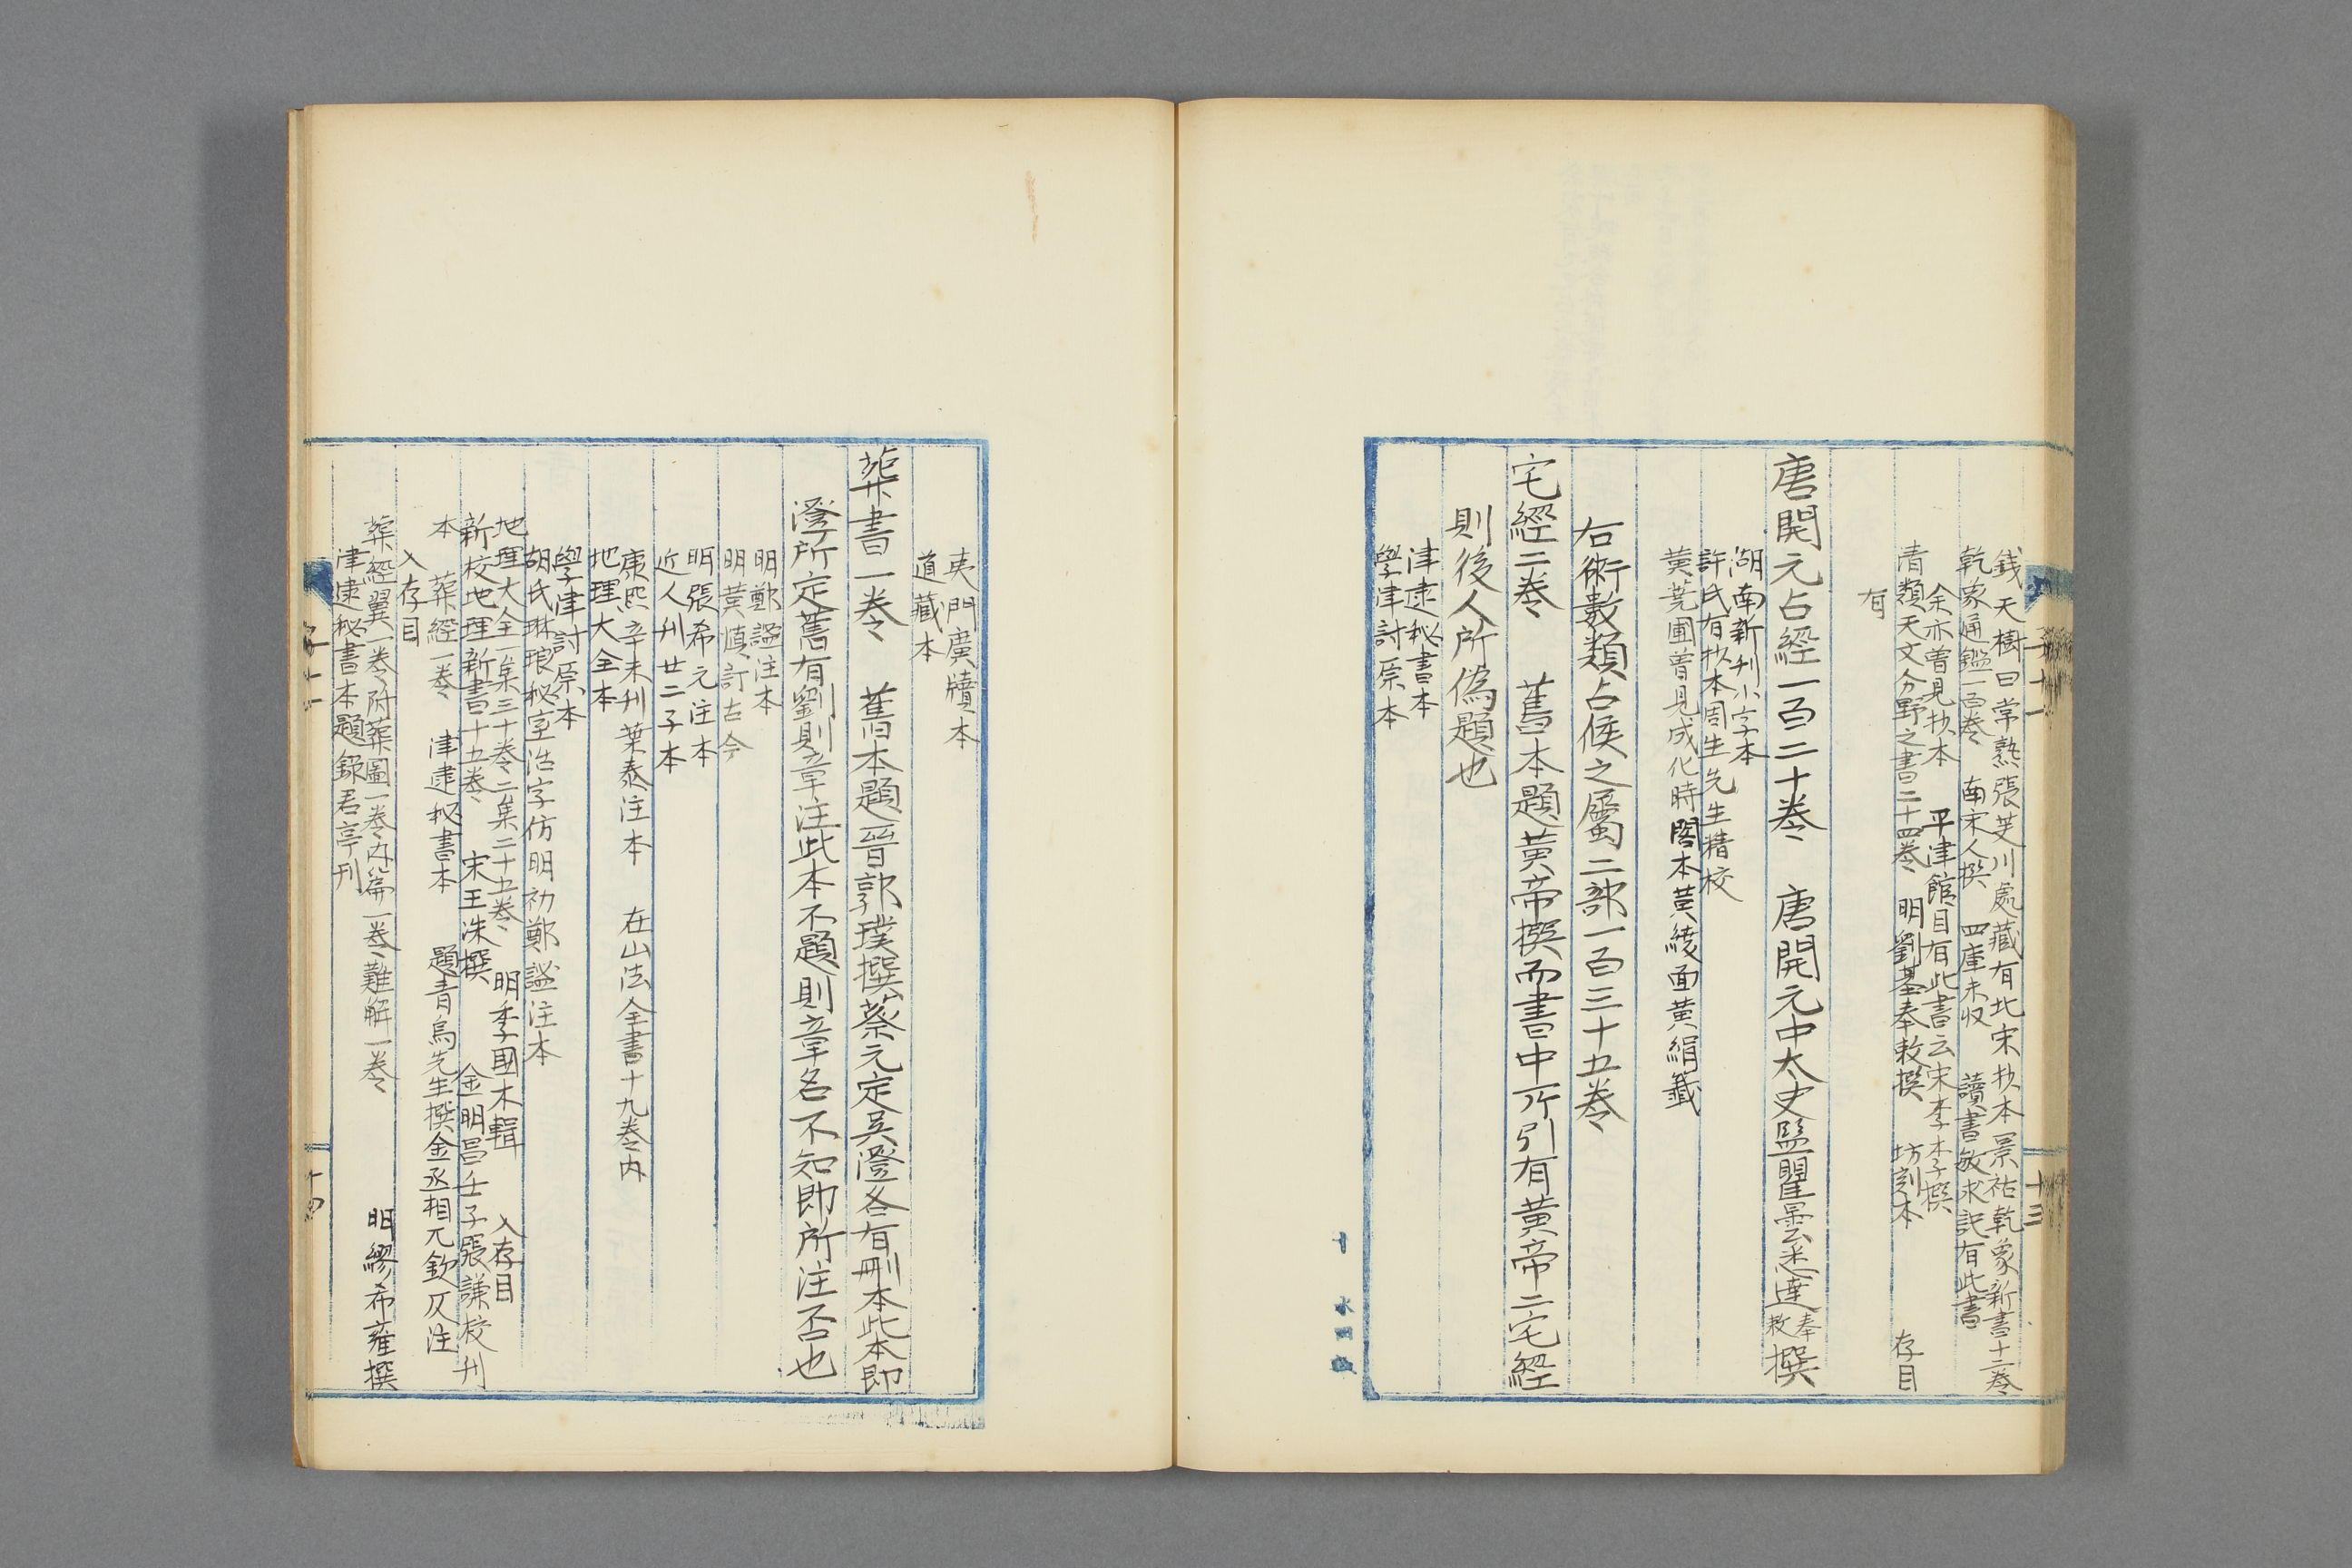 錢天樹曰常熟張芙川處藏有北宋抄本景祐乾象新書十二卷
乾象通鑑一百卷 南宋人撰 四庫未收 讀書敏求記有此書
余亦曾見抄本 平津館目有此書云宋李季撰
清類天文分野之書二十四卷 明劉基奉敕撰 坊刻本 存目
有
唐開元占經一百二十卷 唐開元中太史監瞿曇悉達奉敕撰
湖南新刊小字本
許氏有抄本周生先生精校
黃蕘圃曾見成化時閣本黃綾面黃絹籤
右術數類占候之屬二部一百三十五卷
宅經二卷 舊本題黃帝撰而書中所引有黃帝二宅經
則後人所偽題也
津逮秘書本
學津討原本
子十一
十三
夷門廣牘本
道藏本
葬書一卷 舊本題晉郭璞撰蔡元定吳澄各有刪本此本即
澄所定舊有劉則章注此本不題則章名不知即所注否也
明鄭謐注本
明黃慎訂古今
明張希元注本
近人刊廿二子本
康熙辛未刊葉泰注本 在山法全書十九卷內
地理大全本
學津討原本
胡氏琳琅秘室活字仿明初鄭謐注本
地理大全一集三十卷二集二十五卷 明李國木輯 入存目
新校地理新書十五卷 宋王洙撰 金明昌壬子張謙校刊
本 葬經一卷 津逮秘書本 題青烏先生撰金丞相兀欽仄注
入存目
葬經翼一卷附葬圖一卷內篇一卷難解一卷 明繆希雍撰
津逮秘書本題錄君亭刊
十四